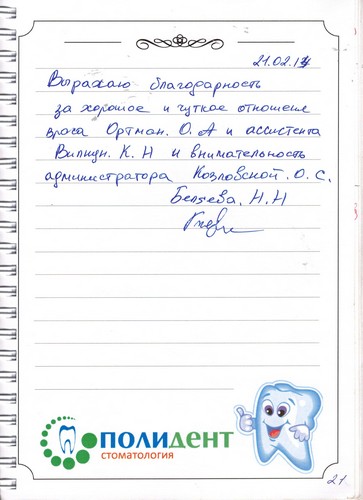 21.02.14
Выражаю благодарность
за хорошое и чуткое отношение
врача Ортман. О. А и ассистента
К. Н и внимательность
администратора Козловской. О. С.
Беляева. Н. Н
ПОЛИДЕНТ
СТОМАТОЛОГИЯ
21